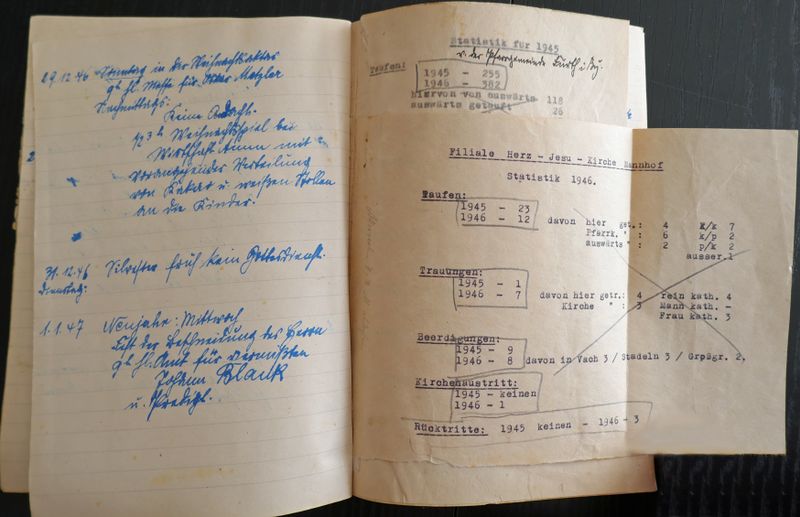 29.12.46 Sonntag in der Weihnachtsoktav
9h hl. Messe für Metzler
Nachmittags.
Keine Andacht.
Weihnachtsspiel bei
Wirtschaft mit
vorangehender Verteilung
von Kakao u. weißen Stollen
an die Kinder.
31.12.46 Silvester früh kein Gottesdienst.
Dienstag:
1.1.47 Neujahr: Mittwoch
Fest der Beschneidung des Herrn
9h hl. Amt für vermißten
Johann Blank
u. Predigt.
Statistik für 1945
v. der Pfarrgemeinde Fürth i. By.
Taufen:
1945 - 255
1946 - 382
hiervon von auswärts 118
auswärts getauft 26
Filiale Herz - Jesu - Kirche Mannhof
Statistik 1946.
Taufen:
1945 - 23
1946 - 12 davon hier get.: 4 K/k 7
Pfarrk. " : 6 k/p 2
auswärts " : 2 p/k 2
ausser.1
Trauungen:
1945 - 1
1946 - 7 davon hier getr.: 4 rein kath. 4
Kirche " : 3 Mann kath. -
Frau kath. 3
Beerdigungen:
1945 - 9
1946 - 8 davon in Vach 3 / Stadeln 3 / Grpsgr. 2.
Kirchenaustritt:
1945 - keinen
1946 - 1
Rücktritte: 1945 keinen - 1946 - 3